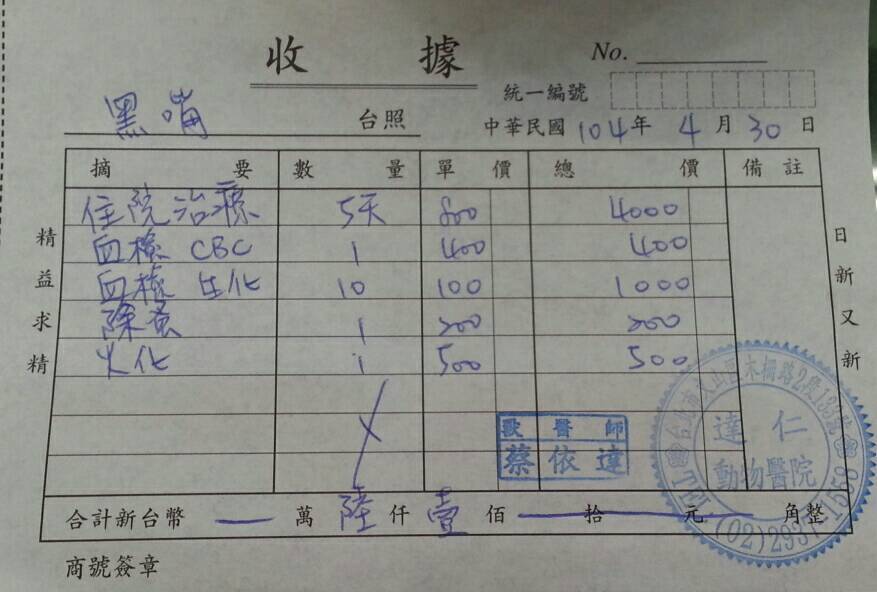 收據
No.
統一編號
黑嘴 台照
中華民國104年4月30日
摘要 數量 單價 總價 備註
住院治療 5天 800 4000
血檢 CBC 1 400 400
血檢 生化 10 100 1000
除蚤 1 200 200
火化 1 500 500
精益求精
日新又新
獸醫師
蔡依達
台北市文山區木柵路2段183號
達仁
動物醫院
TEL (02)2937-1559
合計新台幣 — 萬 陸 仟 壹 佰 — 拾 — 元 — 角整
商號簽章